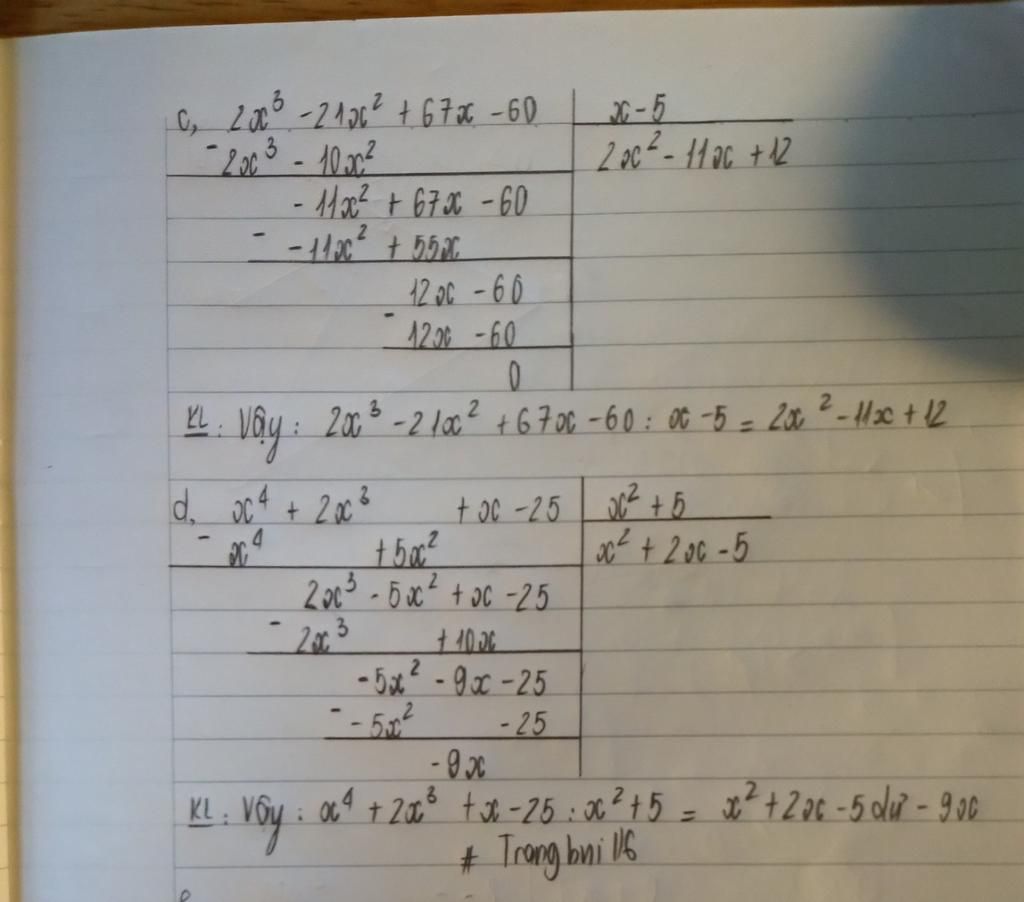 c, 2x³ - 21x² + 67x - 60 | x - 5
- 2x³ - 10x² | 2x² - 11x + 12
- 11x² + 67x - 60
- - 11x² + 55x
12x - 60
- 12x - 60
0
KL: Vậy: 2x³ - 21x² + 67x - 60 : x - 5 = 2x² - 11x + 12
d, x⁴ + 2x³ + x - 25 | x² + 5
- x⁴ + 5x² | x² + 2x - 5
2x³ - 5x² + x - 25
- 2x³ + 10x
- 5x² - 9x - 25
- - 5x² - 25
- 9x
KL: Vậy: x⁴ + 2x³ + x - 25 : x² + 5 = x² + 2x - 5 dư - 9x
# Trangbni 1/6